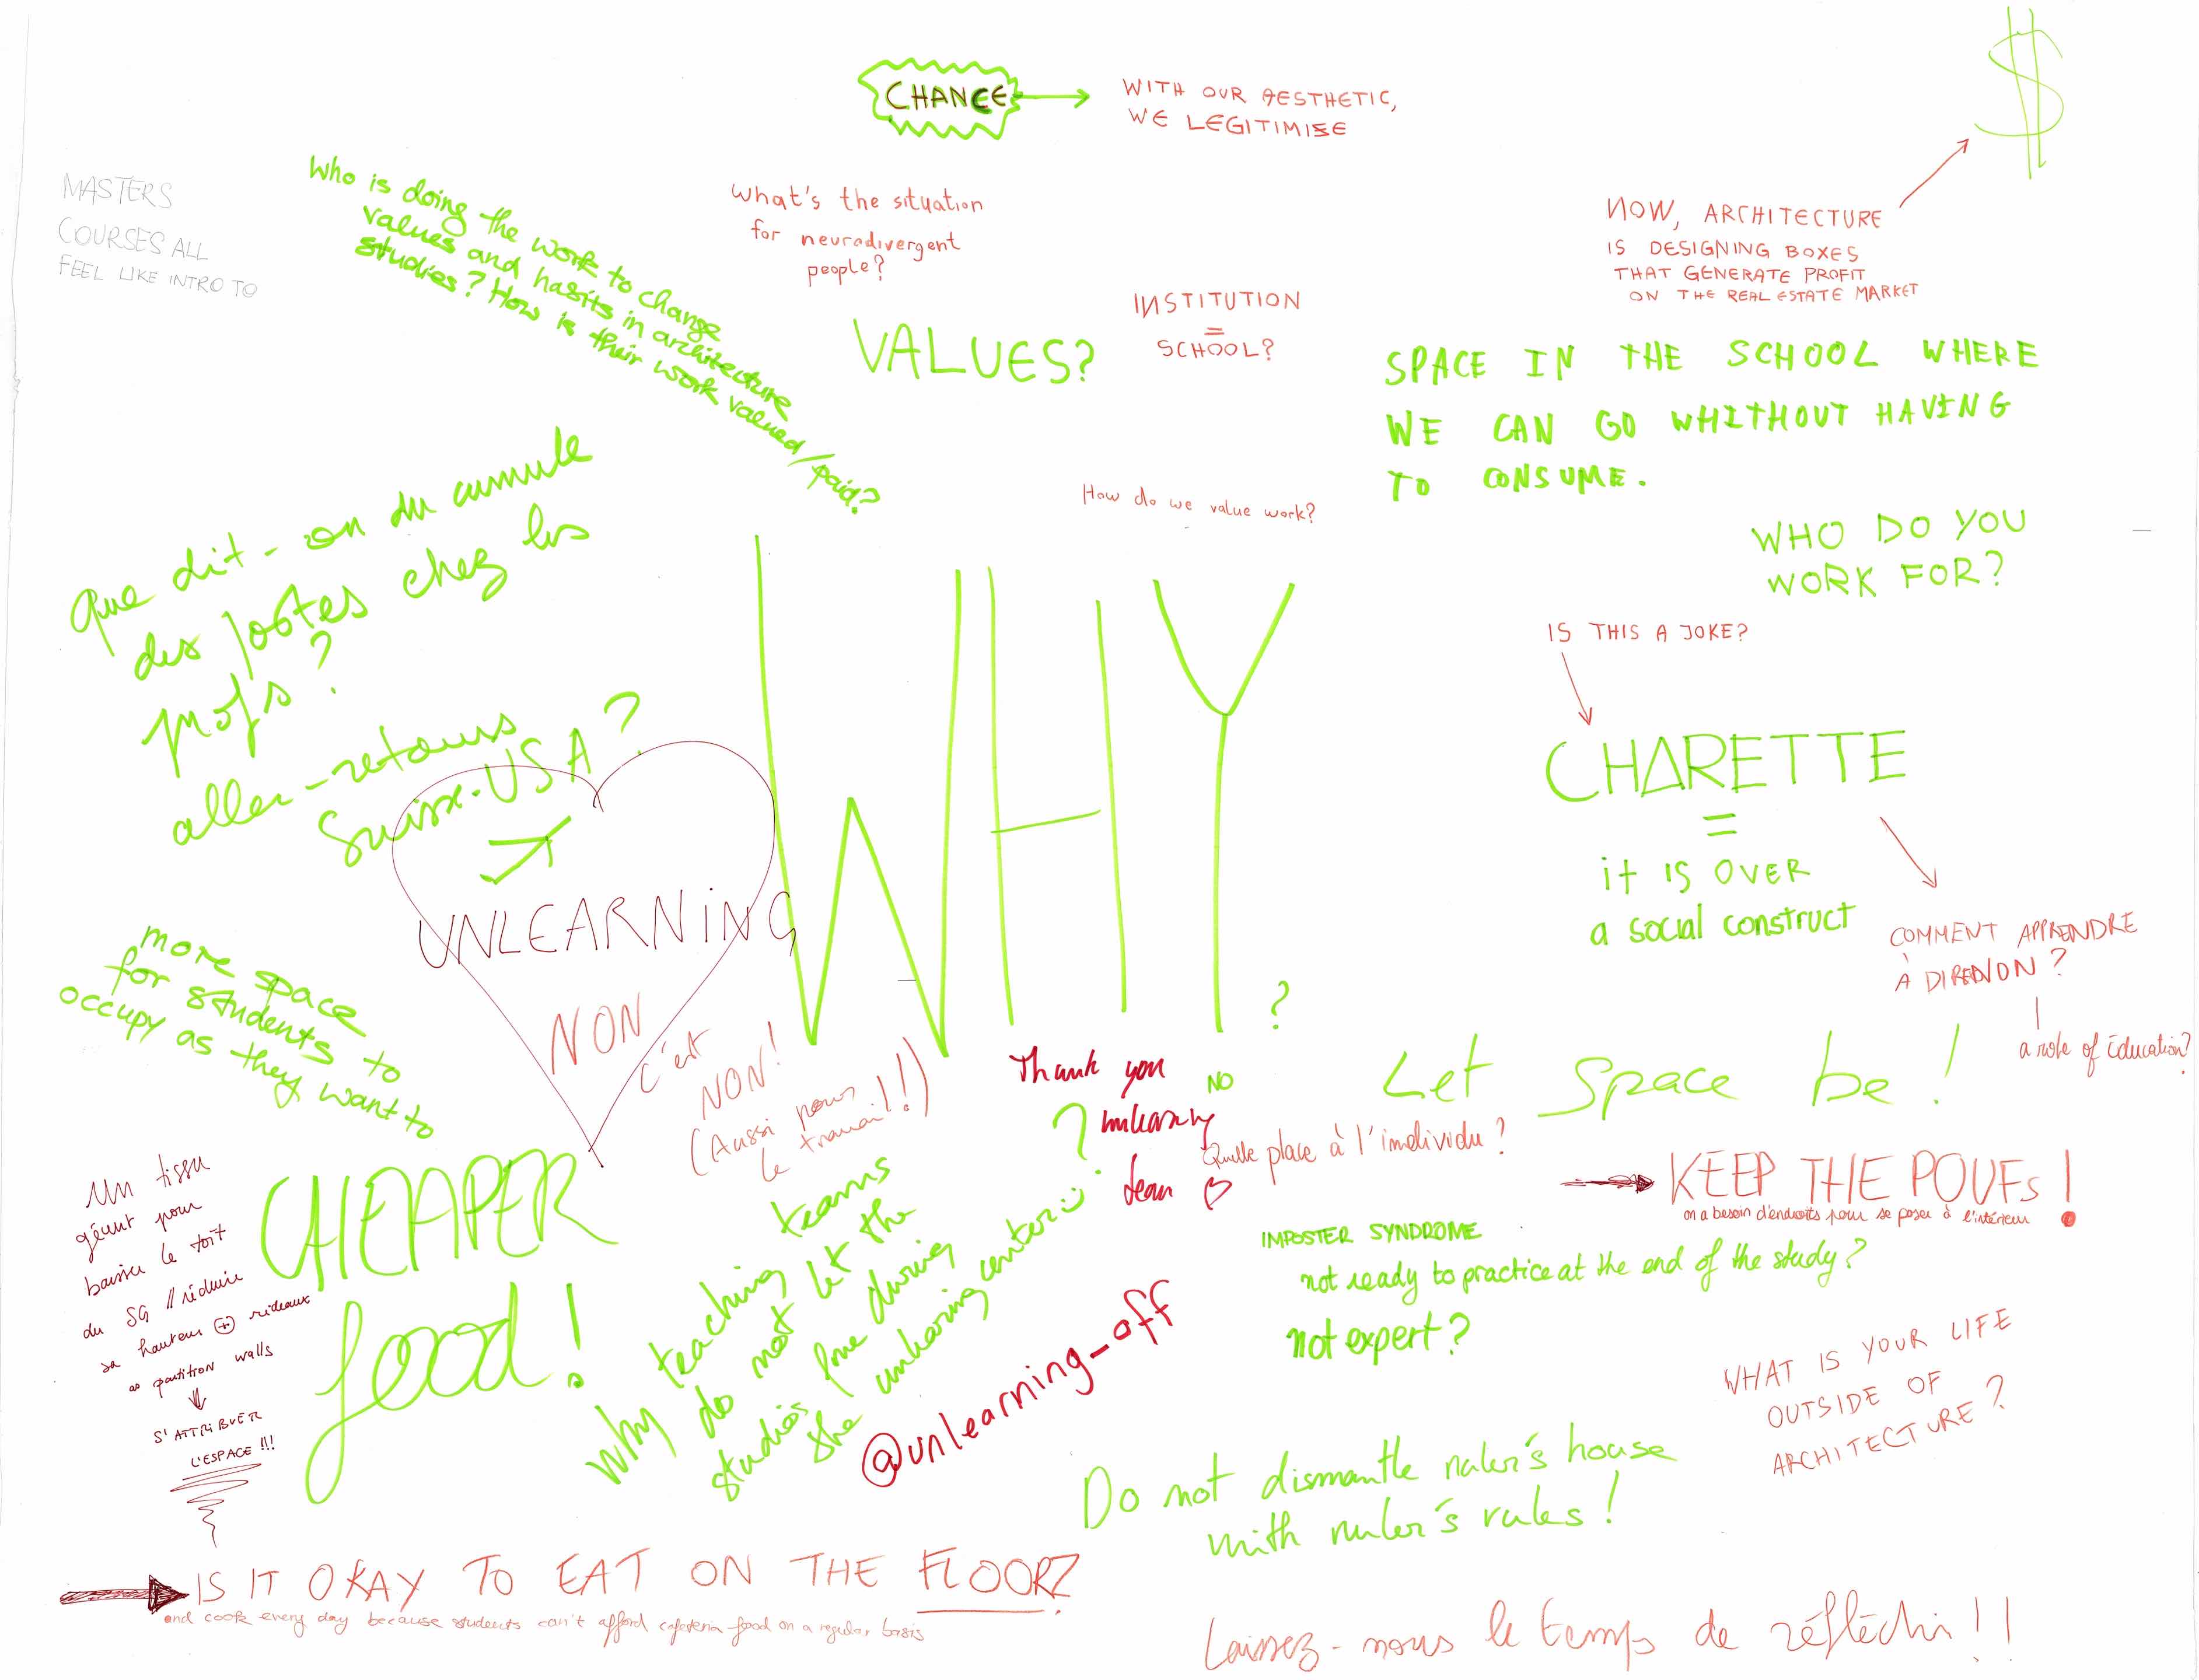 CHANCE
WITH OUR AESTHETIC,
WE LEGITIMISE
$
MASTERS
COURSES ALL
FEEL LIKE INTRO TO
Who is doing the work to change
values and habits in architecture
studies? How is their work valued/paid?
What's the situation
for neurodivergent
people?
INSTITUTION
=
SCHOOL?
VALUES?
NOW, ARCHITECTURE
IS DESIGNING BOXES
THAT GENERATE PROFIT
ON THE REAL ESTATE MARKET
SPACE IN THE SCHOOL WHERE
WE CAN GO WHITHOUT HAVING
TO CONSUME.
How do we value work?
WHO DO YOU
WORK FOR?
Que dit-on du cumule
des postes chez les
profs?
aller-retours
Suisse-USA?
WHY
?
IS THIS A JOKE?
CHARETTE
=
it is OVER
a social construct
COMMENT APPRENDRE
À DIRE NON?
a role of Education?
UNLEARNING
NON
c'est
NON!
(Aussi pour
le travail!!)
more space
for students to
occupy as they want to
Thank you
unlearning
team ♡
NO
Let Space be!
Quelle place à l'individu?
KEEP THE POUFs!
on a besoin d'endroits pour se poser à l'intérieur
Un tissu
géant pour
baisser le toit
du SG // réduire
sa hauteur (+) rideaux
as partition walls
S'ATTRIBUER
L'ESPACE!!!
CHEAPER
food!
why teaching teams
do not let the
studios free during
the unlearning center:)?
@unlearning_off
IMPOSTER SYNDROME
not ready to practice at the end of the study?
not expert?
WHAT IS YOUR LIFE
OUTSIDE OF
ARCHITECTURE?
Do not dismantle ruler's house
with ruler's rules!
IS IT OKAY TO EAT ON THE FLOOR?
and cook every day because students can't afford cafeteria food on a regular basis
Laissez-nous le temps de réfléchir!!